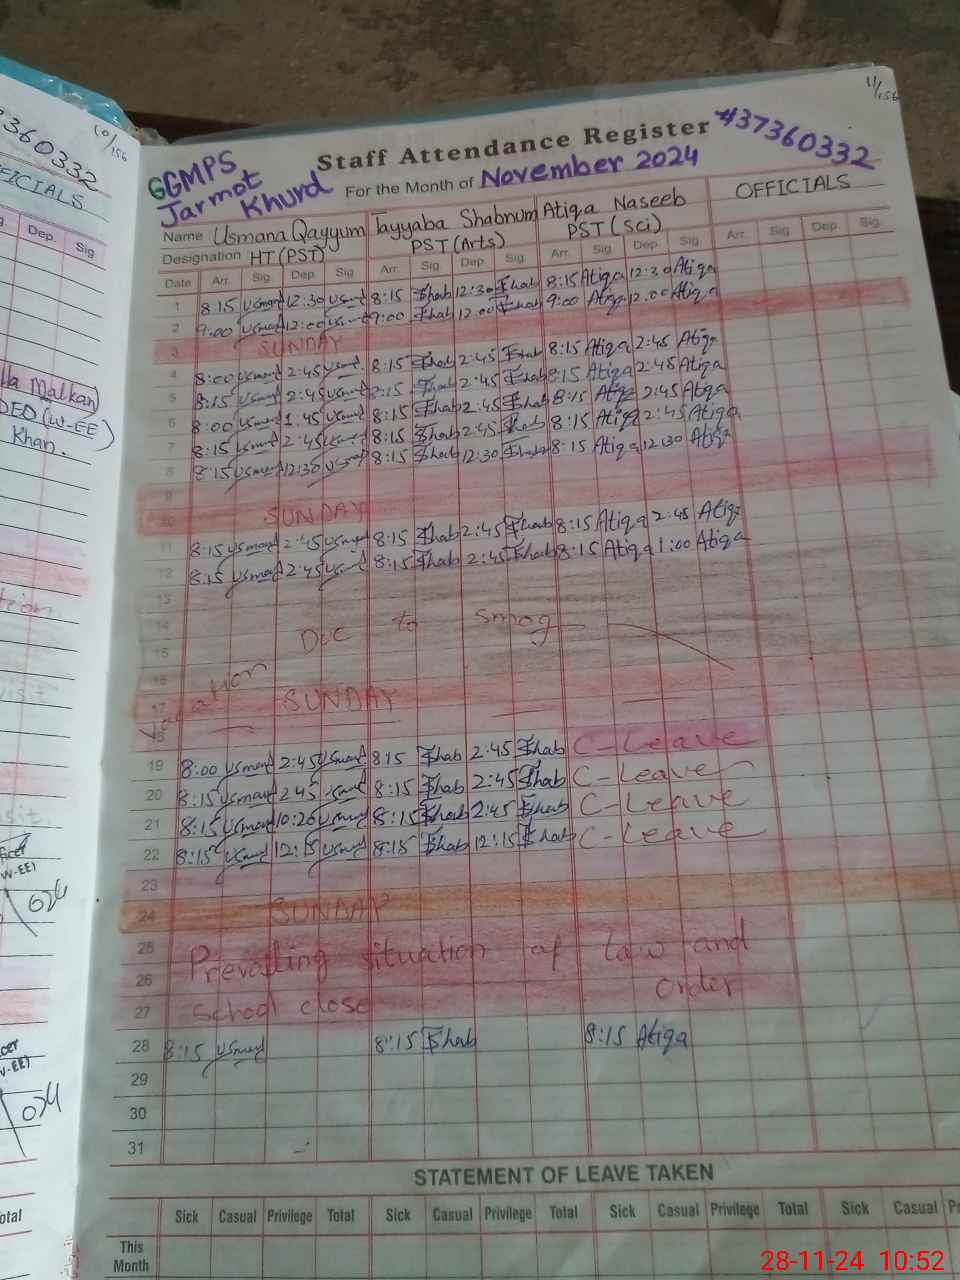 11/156
10/156
Staff Attendance Register
#37360332
GGMPS
Jarmot
Khurd
For the Month of November 2024
OFFICIALS
Name Usmana Qayyum Tayyaba Shabnum Atiqa Naseeb
Designation HT (PST) PST (Arts) PST (Sci)
Date Arr. Sig Dep. Sig Arr. Sig Dep. Sig Arr. Sig. Dep. Sig. Arr. Sig. Dep. Sig.
1 8:15 Usman 12:30 Usman 8:15 Shab 12:30 Shab 8:15 Atiqa 12:30 Atiqa
2 9:00 Usman 12:00 Usman 9:00 Shab 12:00 Shab 9:00 Atiqa 12:00 Atiqa
3 SUNDAY
4 8:00 Usman 2:45 Usman 8:15 Shab 2:45 Shab 8:15 Atiqa 2:45 Atiqa
5 8:15 Usman 2:45 Usman 8:15 Shab 2:45 Shab 8:15 Atiqa 2:45 Atiqa
6 8:00 Usman 1:45 Usman 8:15 Shab 2:45 Shab 8:15 Atiqa 2:45 Atiqa
7 8:15 Usman 2:45 Usman 8:15 Shab 2:45 Shab 8:15 Atiqa 2:45 Atiqa
8 8:15 Usman 12:30 Usman 8:15 Shab 12:30 Shab 8:15 Atiqa 12:30 Atiqa
9
10 SUNDAY
11 8:15 Usman 2:45 Usman 8:15 Shab 2:45 Shab 8:15 Atiqa 2:45 Atiqa
12 8:15 Usman 2:45 Usman 8:15 Shab 2:45 Shab 8:15 Atiqa 1:00 Atiqa
13
14 Vacation Due to smog
15
16
17 SUNDAY
18
19 8:00 Usman 2:45 Usman 8:15 Shab 2:45 Shab C-Leave
20 8:15 Usman 2:45 Usman 8:15 Shab 2:45 Shab C-Leave
21 8:15 Usman 10:26 Usman 8:15 Shab 2:45 Shab C-Leave
22 8:15 Usman 12:15 Usman 8:15 Shab 12:15 Shab C-Leave
23
24 SUNDAY
25 Prevailing situation of law and
26 order
27 school close
28 8:15 Usman 8:15 Shab 8:15 Atiqa
29
30
31
STATEMENT OF LEAVE TAKEN
Sick Casual Privilege Total Sick Casual Privilege Total Sick Casual Privilege Total Sick Casual
This
Month
360332
Dep. Sig
Malkan)
(W-EE)
Khan.
28-11-24 10:52